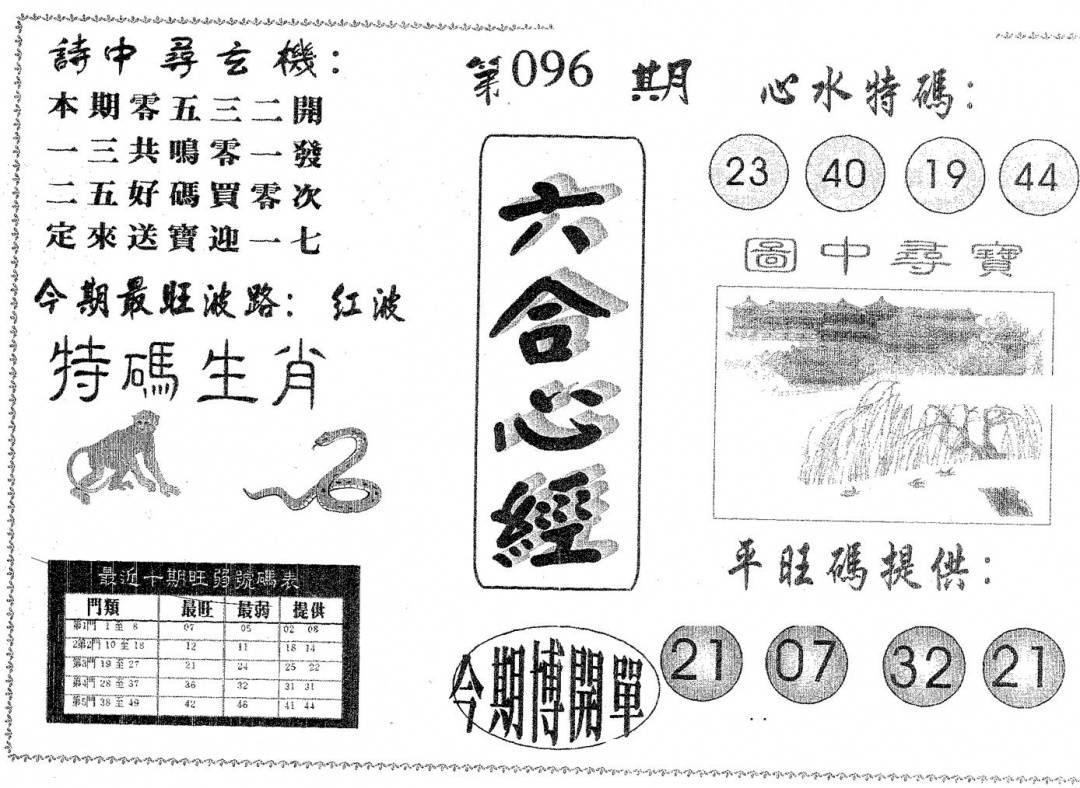 詩中尋玄機：
本期零五三二開
一三共鳴零一發
二五好碼買零次
定來送寶迎一七
今期最旺波路：紅波
特碼生肖
最近十期旺弱號碼表
門類 最旺 最弱 提供
第1門 1 至 8 07 05 02 08
第2門 10 至 18 12 11 18 14
第3門 19 至 27 21 24 25 22
第4門 28 至 37 36 32 31 31
第5門 38 至 49 42 46 41 44
第096期
六合心經
今期博開單
心水特碼：
23 40 19 44
圖中尋寶
平旺碼提供：
21 07 32 21